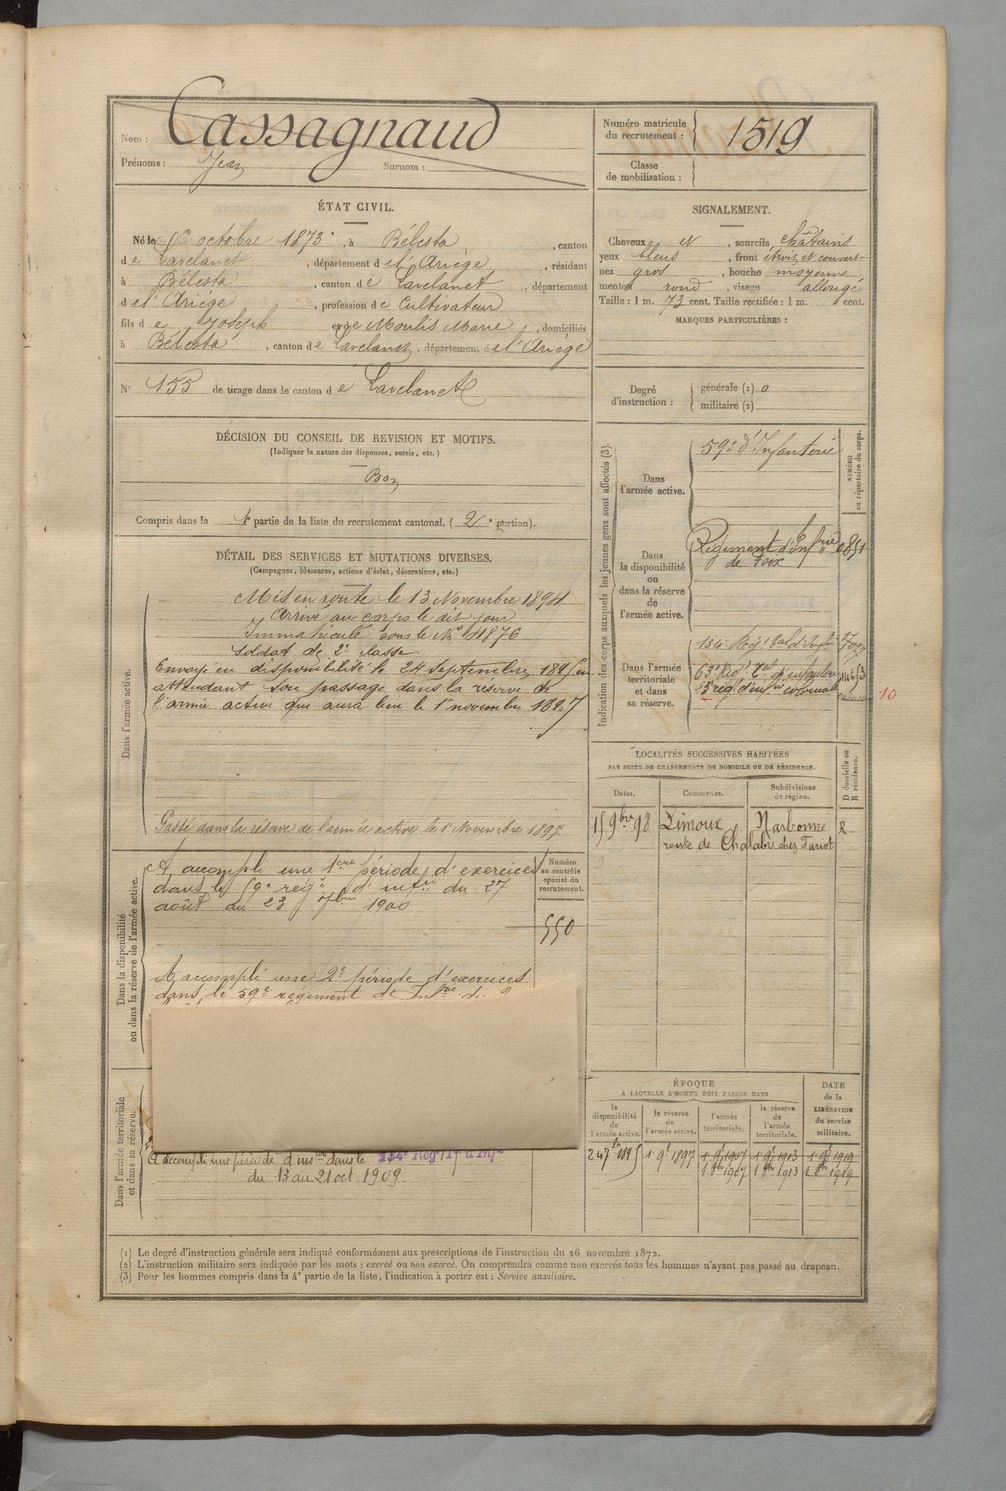 Nom : Cassagnaud
Prénoms : Jean Surnom :
Numéro matricule du recrutement : 1519
Classe de mobilisation :
ÉTAT CIVIL.
Né le 16 octobre 1873, à Bélesta, canton
de Lavelanet, département de l'Ariège, résidant
à Bélesta, canton de Lavelanet, département
de l'Ariège, profession de Cultivateur
fils de Joseph et de Moulis Marie, domiciliés
à Bélesta, canton de Lavelanet, département de l'Ariège
N° 155 de tirage dans le canton de Lavelanet
SIGNALEMENT.
Cheveux et, sourcils châtains
yeux bleus, front étroit et couvert
nez gros, bouche moyenne
menton rond, visage allongé
Taille : 1 m. 73 cent. Taille rectifiée : 1 m. cent.
MARQUES PARTICULIÈRES :
Degré d'instruction : générale (1) 0
militaire (2)
DÉCISION DU CONSEIL DE REVISION ET MOTIFS.
(Indiquer la nature des dispenses, sursis, etc.)
Bon
Compris dans la partie de la liste du recrutement cantonal. (2e portion).
DÉTAIL DES SERVICES ET MUTATIONS DIVERSES.
(Campagnes, blessures, actions d'éclat, décorations, etc.)
Dans l'armée active.
Mis en route le 13 Novembre 1894
Arrivé au corps le dit jour
Immatriculé sous le No 4876
Soldat de 2e classe
Envoyé en disponibilité le 24 septembre 1895 en
attendant son passage dans la réserve de
l'armée active qui aura lieu le 1er novembre 1897
Passé dans la réserve de l'armée active le 1er Novembre 1897
Dans la disponibilité ou dans la réserve de l'armée active.
A accompli une 1ère période d'exercices
dans le 59e régt d'infrie du 27
août au 23 7bre 1900
Numéro au contrôle spécial du recrutement.
550
A accompli une 2e période d'exercices
dans le 59e régiment d'Infrie du
Dans l'armée territoriale et dans sa réserve.
A accompli une période d'inson dans le 134e Régt Tal d'Infie
du 13 au 21 oct 1909
Indication des corps auxquels les jeunes gens sont affectés (3).
NUMÉRO au répertoire du corps.
Dans l'armée active.
59e d'Infanterie
Dans la disponibilité ou dans la réserve de l'armée active.
Régiment d'Infrie
de Foix
Dans l'armée territoriale et dans sa réserve.
134e Régt Tal d'Inf
63e Régt Tal d'infanterie
régt d'infie coloniale
10
LOCALITÉS SUCCESSIVES HABITÉES
PAR SUITE DE CHANGEMENTS DE DOMICILE OU DE RÉSIDENCE.
Dates. Communes. Subdivisions de région. D domicile ou R résidence.
15 9bre 98 Limoux Narbonne R
route de Chalabre chez Tariot
ÉPOQUE
À LAQUELLE L'HOMME DOIT PASSER DANS
la disponibilité de l'armée active. la réserve de l'armée active. l'armée territoriale. la réserve de l'armée territoriale.
DATE de la LIBÉRATION du service militaire.
24 7bre 1895 1er 9bre 1897 1er 9bre 1907 1er 9bre 1913 1er 9bre 1919
1 8bre 1907 1 8bre 1913 1 8bre 1919
(1) Le degré d'instruction générale sera indiqué conformément aux prescriptions de l'instruction du 26 novembre 1872.
(2) L'instruction militaire sera indiquée par les mots : exercé ou non exercé. On comprendra comme non exercés tous les hommes n'ayant pas passé au drapeau.
(3) Pour les hommes compris dans la 4e partie de la liste, l'indication à porter est : Service auxiliaire.